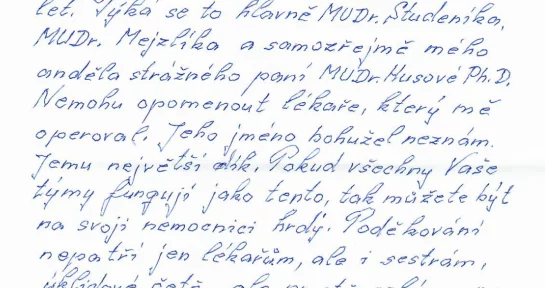 let. Týká se to hlavně MUDr. Studeníka,
MUDr. Mejzlíka a samozřejmě mého
anděla strážného paní MUDr. Husové Ph.D.
Nemohu opomenout lékaře, který mě
operoval. Jeho jméno bohužel neznám.
Jemu největší dík. Pokud všechny Vaše
týmy fungují jako tento, tak můžete být
na svoji nemocnici hrdý. Poděkování
nepatří jen lékařům, ale i sestrám,
úklidové četě, ale